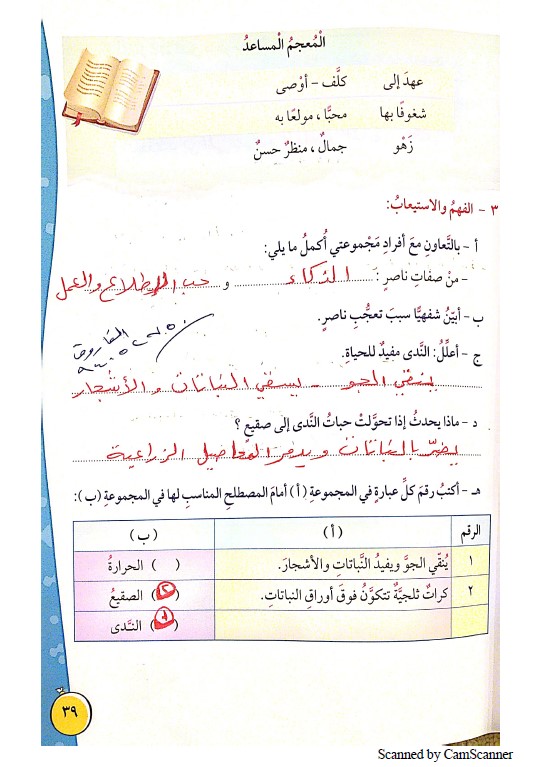 الْمُعجمُ الْمساعدُ
عهدَ إلى كلَّف - أوْصى
شغوفًا بها محبًّا ، مولعًا به
زَهْو جمالٌ ، منظرٌ حسنٌ
٣ - الفهمُ والاستيعابُ:
أ - بالتَّعاونِ معَ أفرادِ مَجْموعتي أُكملُ ما يلي:
- منْ صفاتِ ناصرٍ : الذكاء و حب الإطلاع والعمل
ب - أبيّنُ شفهيًّا سببَ تعجُّبِ ناصرٍ.
ج - أعلِّلُ: النَّدى مفيدٌ للحياةِ.
ينقي الجو - يسقي النباتات والأشجار
د - ماذا يحدثُ إذا تحوَّلتْ حباتُ النَّدى إلى صقيعٍ ؟
يضرّ بالنباتات ويدمر المحاصيل الزراعية
هـ - أكتبُ رقمَ كلِّ عبارةٍ في المجموعةِ (أ) أمامَ المصطلحِ المناسبِ لها في المجموعةِ (ب):
الرقم (أ) (ب)
١ يُنقّي الجوَّ ويفيدُ النَّباتاتِ والأشجارَ. ( ) الحرارةُ
٢ كراتٌ ثلجيَّةٌ تتكوَّنُ فوقَ أوراقِ النباتاتِ. (٢) الصقيعُ
(١) النَّدى
٣٩
Scanned by CamScanner